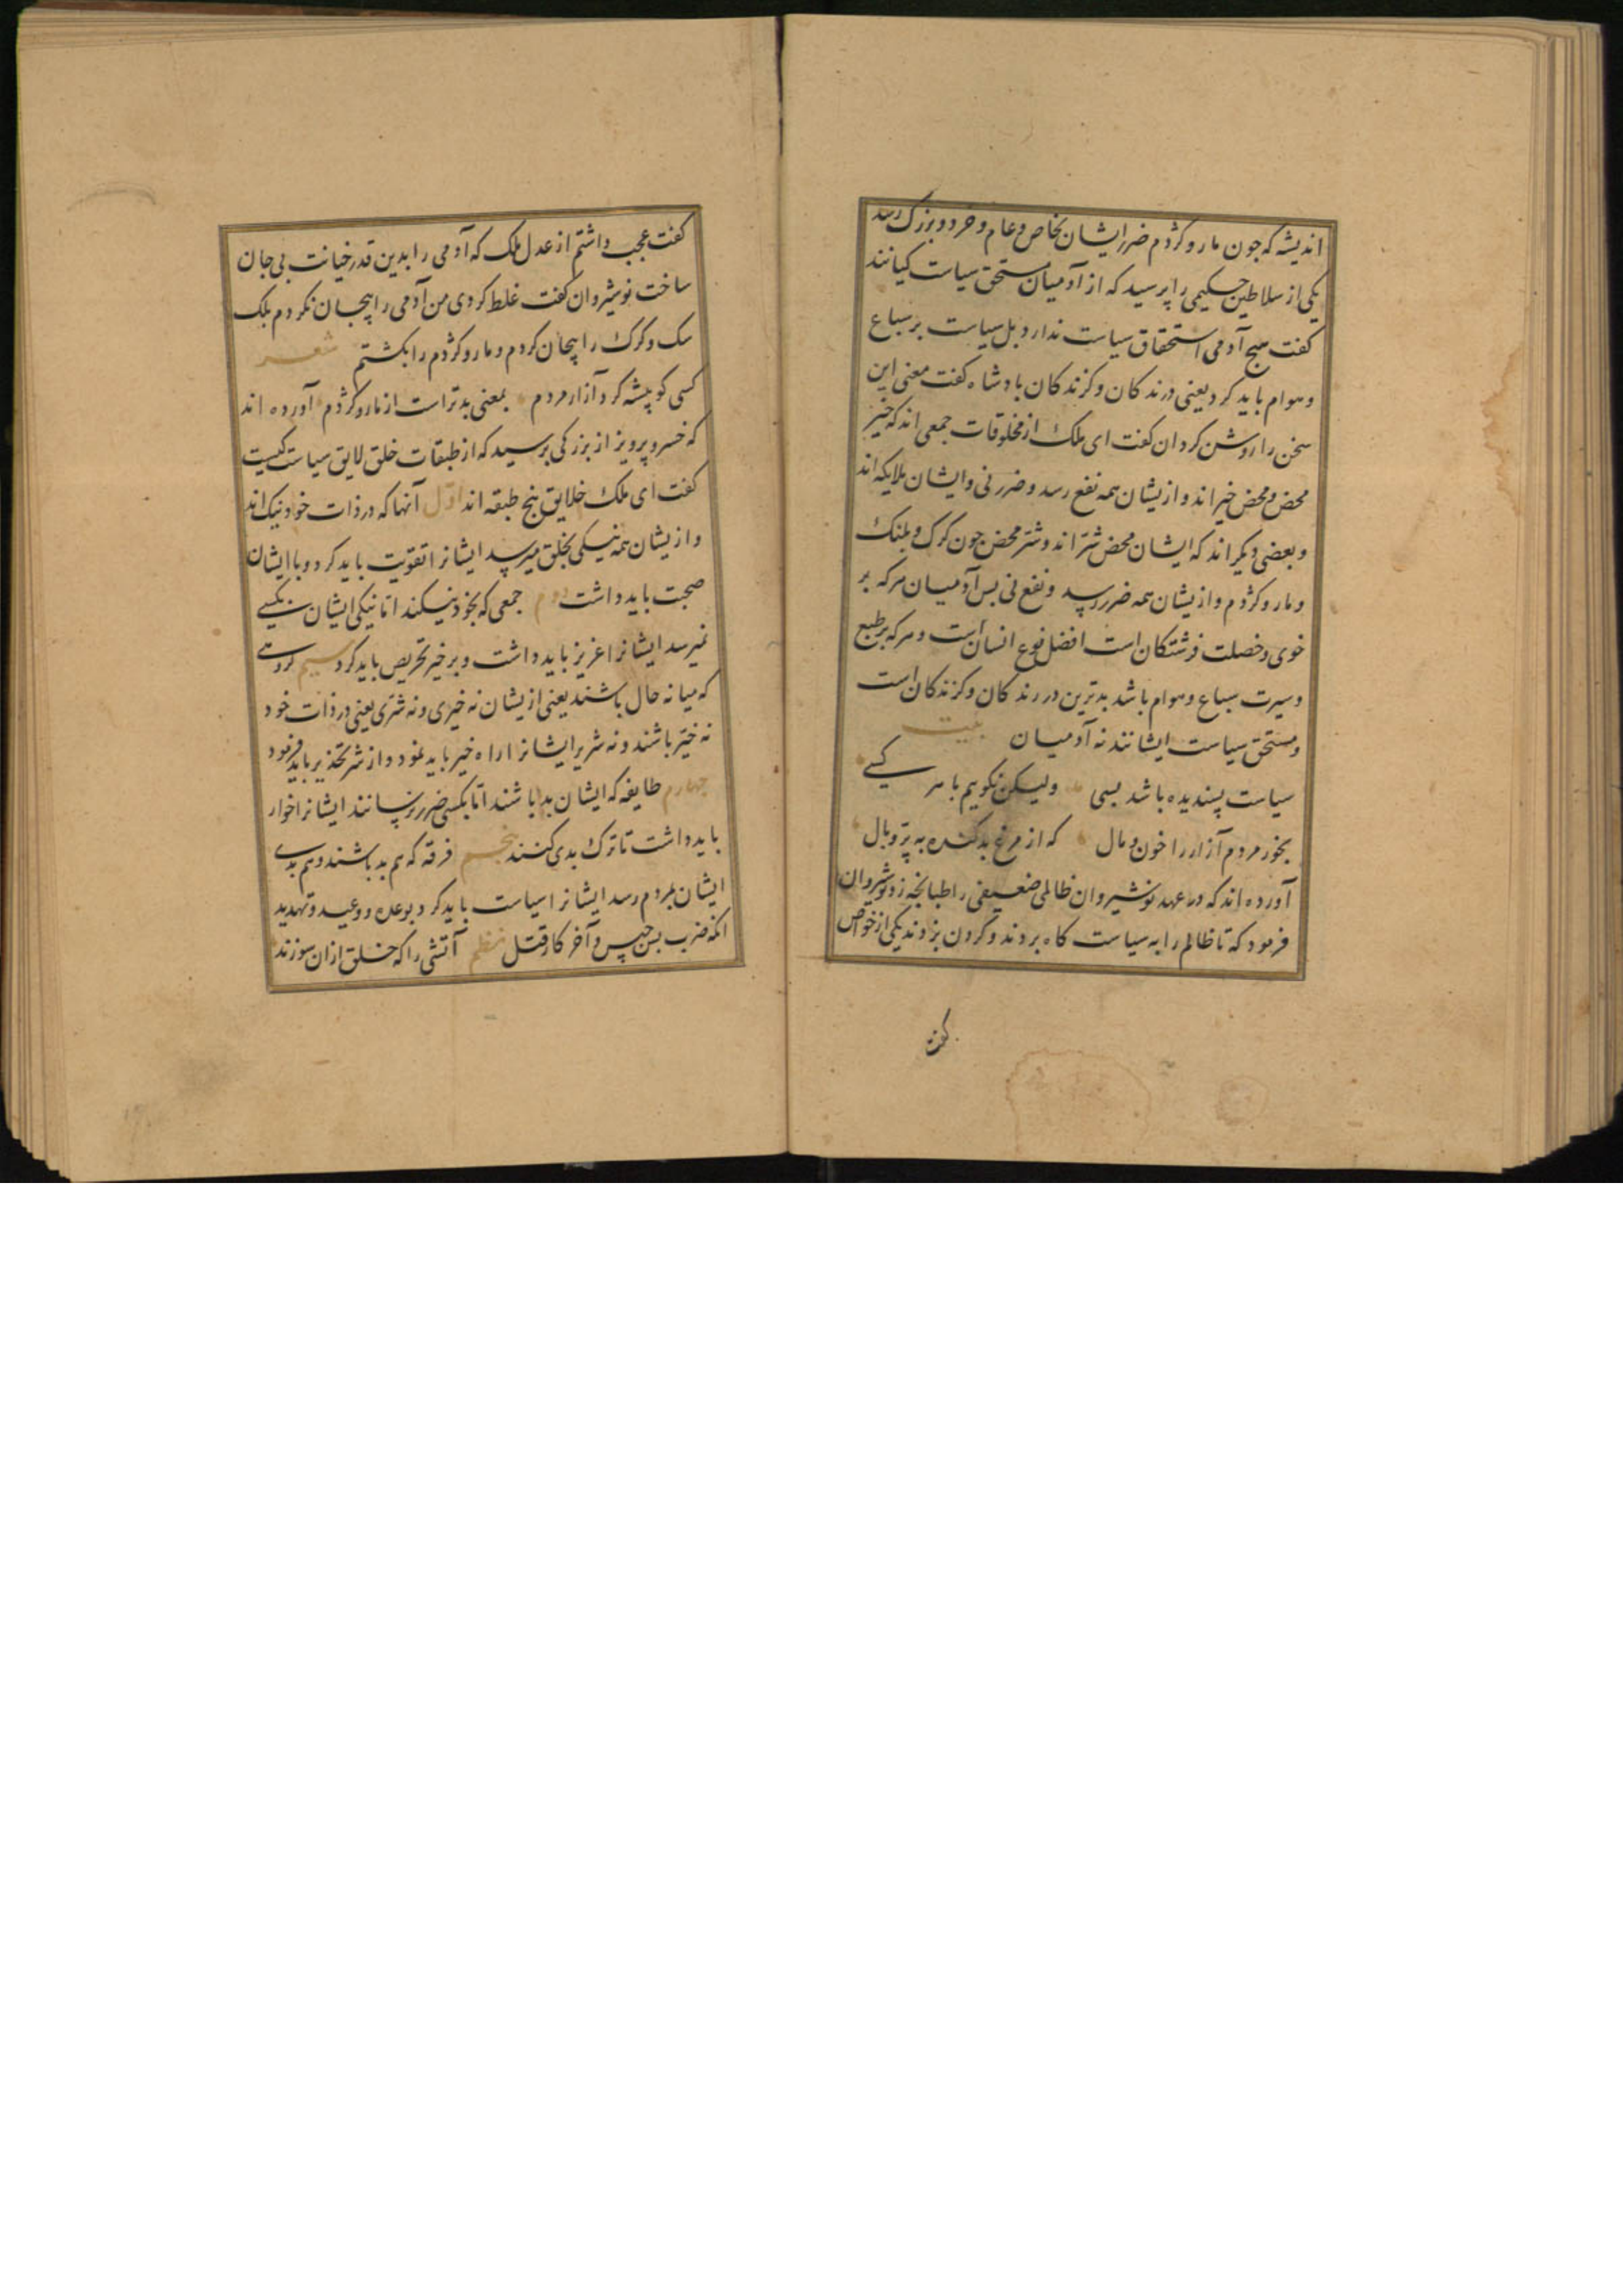 اندیشه که جون مار و کژدم ضرر ایشان بخاص و عام و خرد و بزرک رسد
یکی از سلاطین حکیمی را پرسید که از آدمیان مستحق سیاست کیانند
کفت هیج آدمی استحقاق سیاست ندارد بل سیاست بر سباع
و هوام باید کرد یعنی درندکان و کزندکان بادشاه کفت معنی این
سخن را روشن کردان کفت ای ملک از مخلوقات جمعی اند که خیر
محض و محض خیر اند و ازیشان همه نفع رسد و ضرر نی و ایشان ملایکه اند
و بعضی دیکر اند که ایشان محض شر اند و شر محض جون کرک و بلنک
و مار و کژدم و ازیشان همه ضرر رسد و نفع نی بس آدمیان هرکه بر
خوی و خصلت فرشتکان است افضل نوع انسان است و هرکه بر طبع
و سیرت سباع و هوام باشد بدترین درندکان و کزندکان است
و مستحق سیاست ایشانند نه آدمیان بیت
سیاست پسندیده باشد بسی ولیکن نکویم با هر کسی
بخور مردم آزار را خون و مال که از مرغ بد کنده به پر و بال
آورده اند که در عهد نوشیروان ظالمی ضعیفی را طبانجه زد نوشیروان
فرمود که تا ظالم را به سیاست کاه بردند و کردن بزدند یکی از خواص
کفت
کفت عجب داشتم از عدل ملک که آدمی را بدین قدر خیانت بی جان
ساخت نوشیروان کفت غلط کردی من آدمی را بیجان نکردم بلک
سک و کرک را بیجان کردم و مار و کژدم را بکشتم شعر
کسی کو پیشه کرد آزار مردم بمعنی بدتر است از مار و کژدم آورده اند
که خسرو پرویز از بزرکی برسید که از طبقات خلق لایق سیاست کیست
کفت ای ملک خلایق بنج طبقه اند اول آنها که در ذات خود نیک اند
و ازیشان همه نیکی بخلق میرسد ایشانرا تقویت باید کرد و با ایشان
صحبت باید داشت دوم جمعی که بخود نیکند اما نیکی ایشان بکسی
نمیرسد ایشانرا عزیز باید داشت و بر خیر تحریص باید کرد سیم کروهی
که میانه حال باشند یعنی ازیشان نه خیری و نه شری یعنی در ذات خود
نه خیر باشند و نه شریر ایشانرا راه خیر باید نمود و از شر تحذیر باید فرمود
جهارم طایفه که ایشان بد باشند اما بکسی ضرر نرسانند ایشانرا خوار
باید داشت تا ترک بدی کنند بنجم فرقه که هم بد باشند و هم بدی
ایشان بمردم رسد ایشانرا سیاست باید کرد بوعده و وعید و تهدید
انکه ضرب بس حبس و آخر کار قتل نظم آتشی را که خلق ازان سوزند